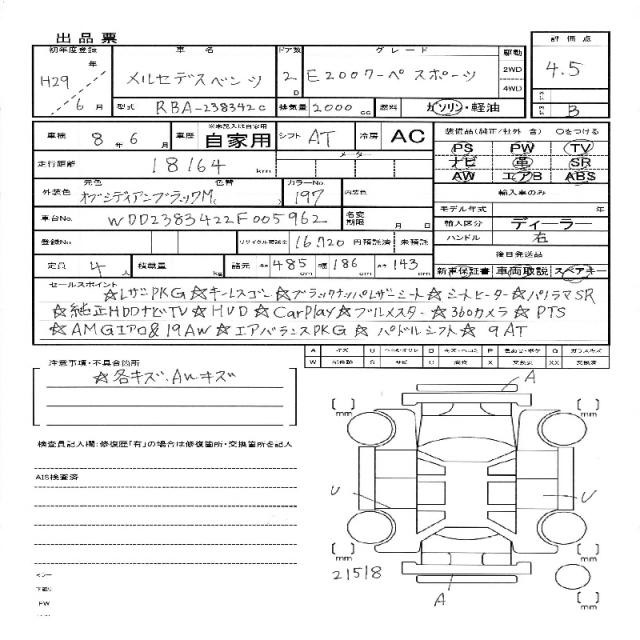 出品票
初年度登録 車名 ドア数 グレード 駆動 評価点
H29年 メルセデスベンツ 2D E200クーペスポーツ 2WD 4WD 4.5
6月 型式 RBA-238342C 排気量 2000cc 燃料 ガソリン・軽油 B
車検 8年6月 車歴 ※未記入は自家用 自家用 シフト AT 冷房 AC 装備品(純正/社外 含) ○をつける
PS PW TV
走行距離 18164km メーター ナビ 革 SR
AW エアB ABS
外装色 元色 オブシディアンブラックM 色替 カラーNo. 197 内装色 輸入車のみ
モデル年式 年
車台No. WDD2383422F005962 名変期限 月 日 輸入区分 ディーラー
登録No. リサイクル預託金 16720円預託済 未預託 ハンドル 右
後日発送品
定員 4人 積載量 kg 諸元 485cm 幅 186cm 143cm 新車保証書 車両取説 スペアキー
セールスポイント ☆レザーPKG☆キーレスゴー☆ブラックナッパレザーシート☆シートヒーター☆パノラマSR
☆純正HDDナビTV☆HUD☆CarPlay☆ブルメスター☆360カメラ☆PTS
☆AMGエアロ&19AW☆エアバランスPKG☆パドルシフト☆9AT
A キズ U D P G ガラスキズ
W S サビ C 腐食 X 交換済 XX 交換済
注意事項・不具合箇所
☆各キズ、AWキズ
検査員記入欄:修復歴「有」の場合は修復箇所・交換箇所を記入
AIS検査済
A
[ ] mm [ ] mm
U U
[ ] mm [ ] mm
21518
A
[ ] mm